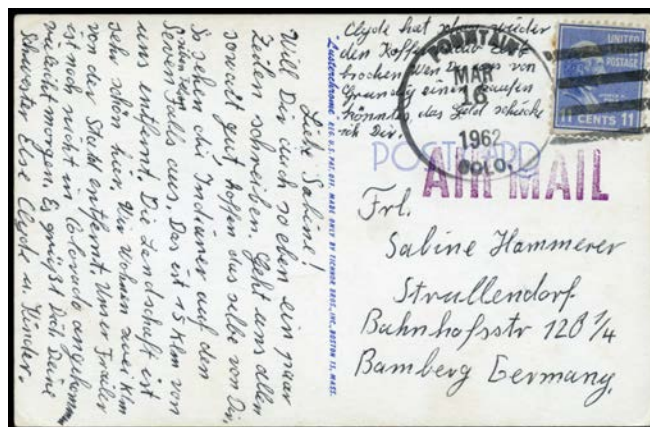 Liebe Sabine!
Will Dir auch so eben ein paar
Zeilen schreiben. Geht uns allen
soweit gut, hoffen das selbe von Dir,
So sehen die Indianer auf den
sieben Felsen
Seven Falls aus. Das ist 15 Klm von
uns entfernt. Die Landschaft ist
sehr schön hier. Wir wohnen zwei Klm
von der Stadt entfernt. Unser Trailer
ist noch nicht in Colorado angekommen
vieleicht morgen. Es grüßt Dich Deine
Schwester Else Clyde u. Kinder.
Lusterchrome REG. U.S. PAT. OFF. MADE ONLY BY TICHNOR BROS., INC., BOSTON 15, MASS.
Clyde hat schon wieder
den Koffer
brochen. Wen Du uns von
Grundig einen kaufen
könntes, das Geld schicke
ich Dir.
FOUNTAIN
MAR
16
1962
COLO.
UNITED
POSTAGE
11 CENTS 11
POSTCARD
AIR MAIL
Frl.
Sabine Hammerer
Strullendorf
Bahnhofsstr 120 1/4
Bamberg Germany.